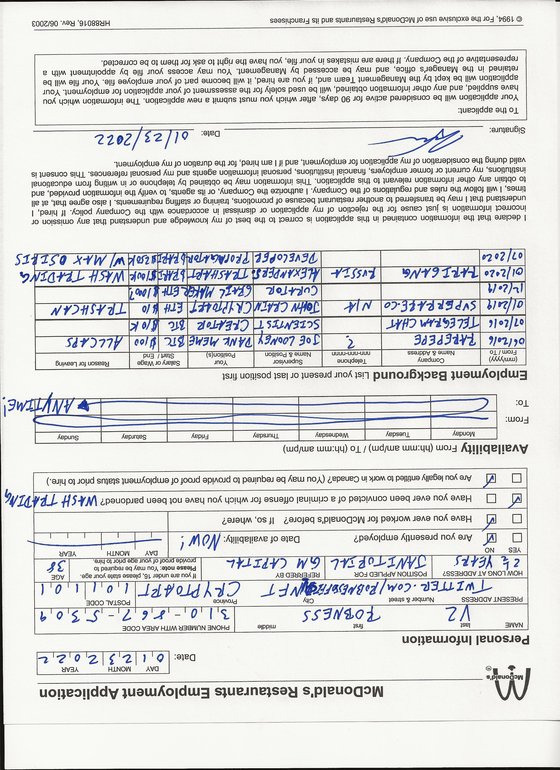 McDonald's
McDonald's Restaurants Employment Application
Date: 01 23 2022
DAY MONTH YEAR
Personal Information
NAME last first middle PHONE NUMBER WITH AREA CODE
V2 ROBNESS 310-867-5309
PRESENT ADDRESS Number & Street City Province POSTAL CODE
TWITTER.COM/ROBNESSOFFICIAL NFT CRYPTOART 101101
HOW LONG AT ADDRESS? POSITION APPLIED FOR REFERRED BY If you are under 16, please state your age. AGE
2 1/2 YEARS JANITORIAL GM CAPITAL Please note: You may be required to provide proof of your age prior to hire. 38
YES NO
Are you presently employed? Date of availability: NOW!
DAY MONTH YEAR
Have you ever worked for McDonald's before? If so, where?
Have you ever been convicted of a criminal offense for which you have not been pardoned? WASH TRADING
Are you legally entitled to work in Canada? (You may be required to provide proof of employment status prior to hire.)
Availability From (hh:mm am/pm) / To (hh:mm am/pm)
Monday Tuesday Wednesday Thursday Friday Saturday Sunday
From:
To: ANYTIME!
Employment Background List your present or last position first
From / To (mm/yyyy) Company Name & Address Telephone nnn-nnn-nnnn Supervisor Name & Position Your Position(s) Salary or Wage Start / End Reason for Leaving
04/2016 RAREPEPE ? JOE LOONEY DANK MEME BTC $100 ALLCAPS
07/2016 TELEGRAM CHAT SCIENTIST CREATOR BTC $10K
01/2019 SUPERRARE.CO N/A JOHN CRAIN CRYPTOART ETH $10 TRASHCAN
12/2019 CURATOR GRAIL MAKER ETH $1000?
01/2020 RARIBLE RUSSIA ALEXANDER TRASHART $RARI $100K WASH TRADING
07/2020 DEVELOPER PROPAGATOR $RARI $250K W/ MAX OSIRIS
I declare that the information contained in this application is correct to the best of my knowledge and understand that any omission or
incorrect information is just cause for the rejection of my application or dismissal in accordance with the Company policy. If hired, I
understand that I may be transferred to another restaurant because of promotions, training or staffing requirements. I also agree that, at all
times, I will follow the rules and regulations of the Company. I authorize the Company, or its agents, to verify the information provided, and
to obtain any other information relevant to this application. This information may be obtained by telephone or in writing from educational
institutions, my current or former employers, financial institutions, personal information agents and my personal references. This consent is
valid during the consideration of my application for employment, and if I am hired, for the duration of my employment.
Signature: Date: 01/23/2022
To the applicant:
Your application will be considered active for 90 days, after which you must submit a new application. The information which you
have supplied, and any other information obtained, will be used solely for the assessment of your application for employment. Your
application will be kept by the Management Team and, if you are hired, it will become part of your employee file. Your file will be
retained in the Manager's office, and may be accessed by Management. You may access your file by appointment with a
representative of the Company. If there are mistakes in your file, you have the right to ask for them to be corrected.
© 1994, For the exclusive use of McDonald's Restaurants and its Franchisees HR88016, Rev. 06/2003